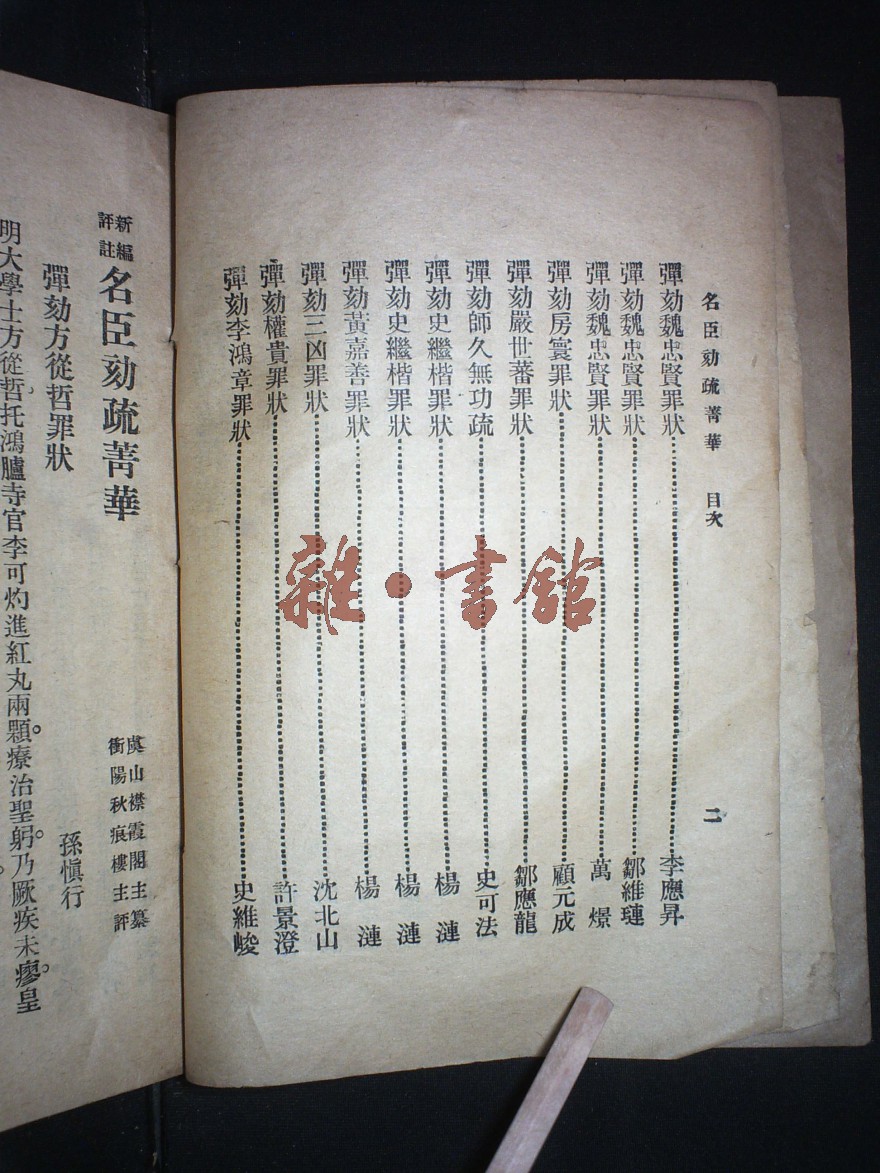 名臣劾疏菁華　目次　二
彈劾魏忠賢罪狀……李應昇
彈劾魏忠賢罪狀……鄒維璉
彈劾魏忠賢罪狀……萬燝
彈劾房寰罪狀……顧元成
彈劾嚴世蕃罪狀……鄒應龍
彈劾師久無功疏……史可法
彈劾史繼楷罪狀……楊漣
彈劾史繼楷罪狀……楊漣
彈劾黃嘉善罪狀……楊漣
彈劾三凶罪狀……沈北山
彈劾權貴罪狀……許景澄
彈劾李鴻章罪狀……史維峻
新編評註名臣劾疏菁華
虞山襟霞閣主纂
衝陽秋痕樓主評
彈劾方從哲罪狀　孫愼行
明大學士方從哲。托鴻臚寺官李可灼進紅丸兩顆。療治聖躬。乃厥疾未瘳。皇
雜·書館